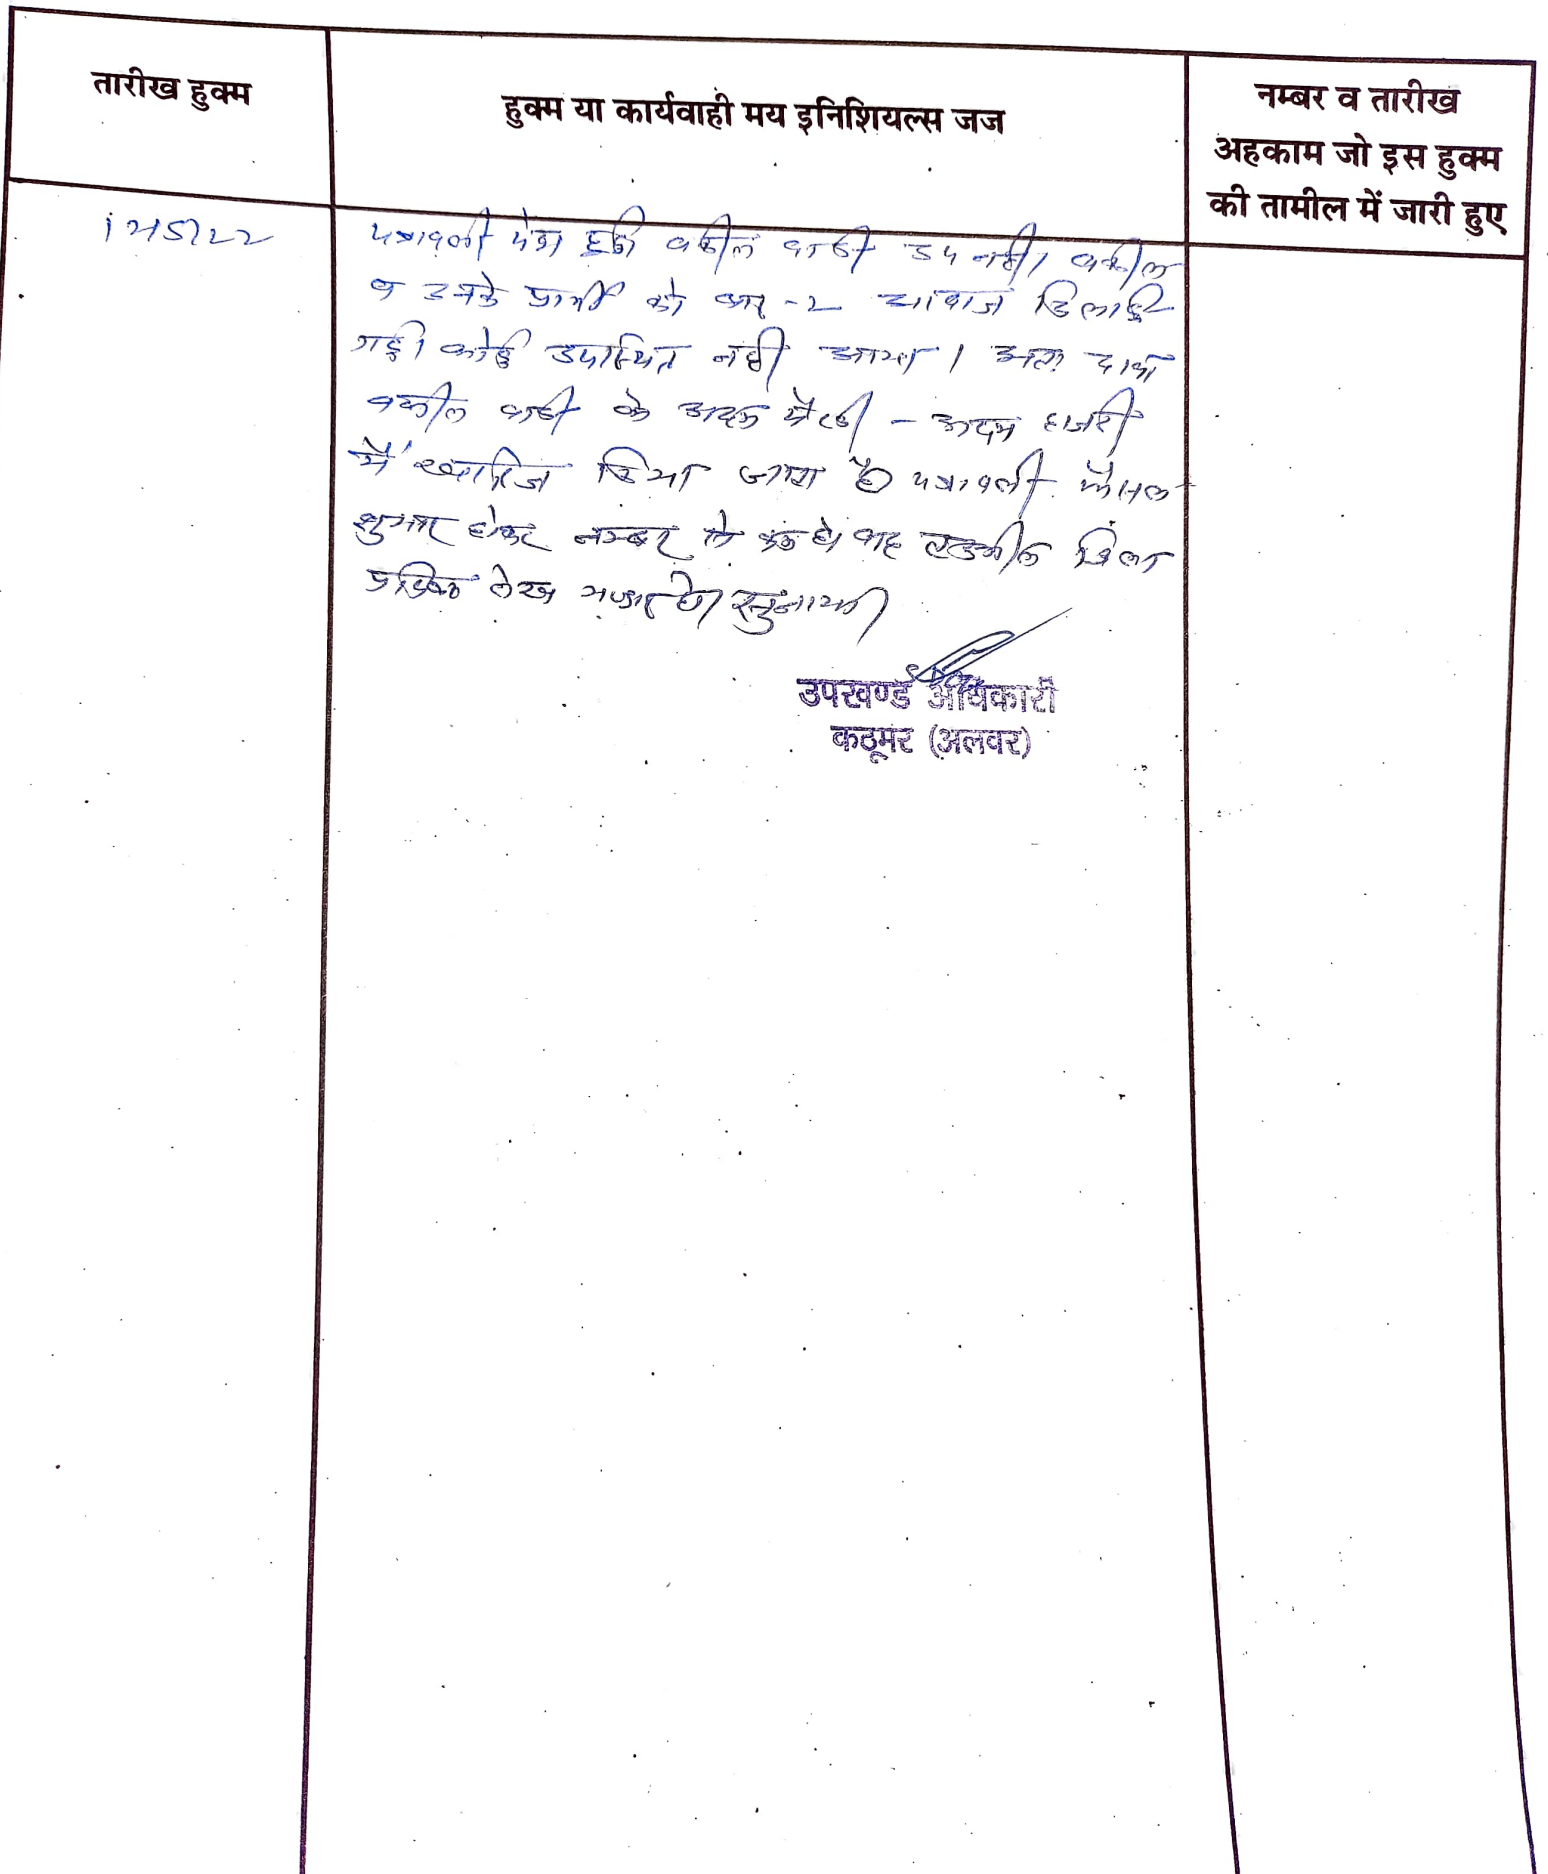 तारीख हुक्म
हुक्म या कार्यवाही मय इनिशियल्स जज
नम्बर व तारीख
अहकाम जो इस हुक्म
की तामील में जारी हुए
पत्रावली पेश हुई वकील वादी उप नही। वकील
व उनके प्रार्थी को बार-२ आवाज दिलाई
गई। कोई उपस्थित नही आया। अतः दावा
वकील वादी के अदम पैरवी - अदम हाजरी
में खारिज किया जाता है पत्रावली फैसल
शुमार होकर नम्बर से कम हो बाद तकमील
लेख सुनाया
उपखण्ड अधिकारी
कठूमर (अलवर)